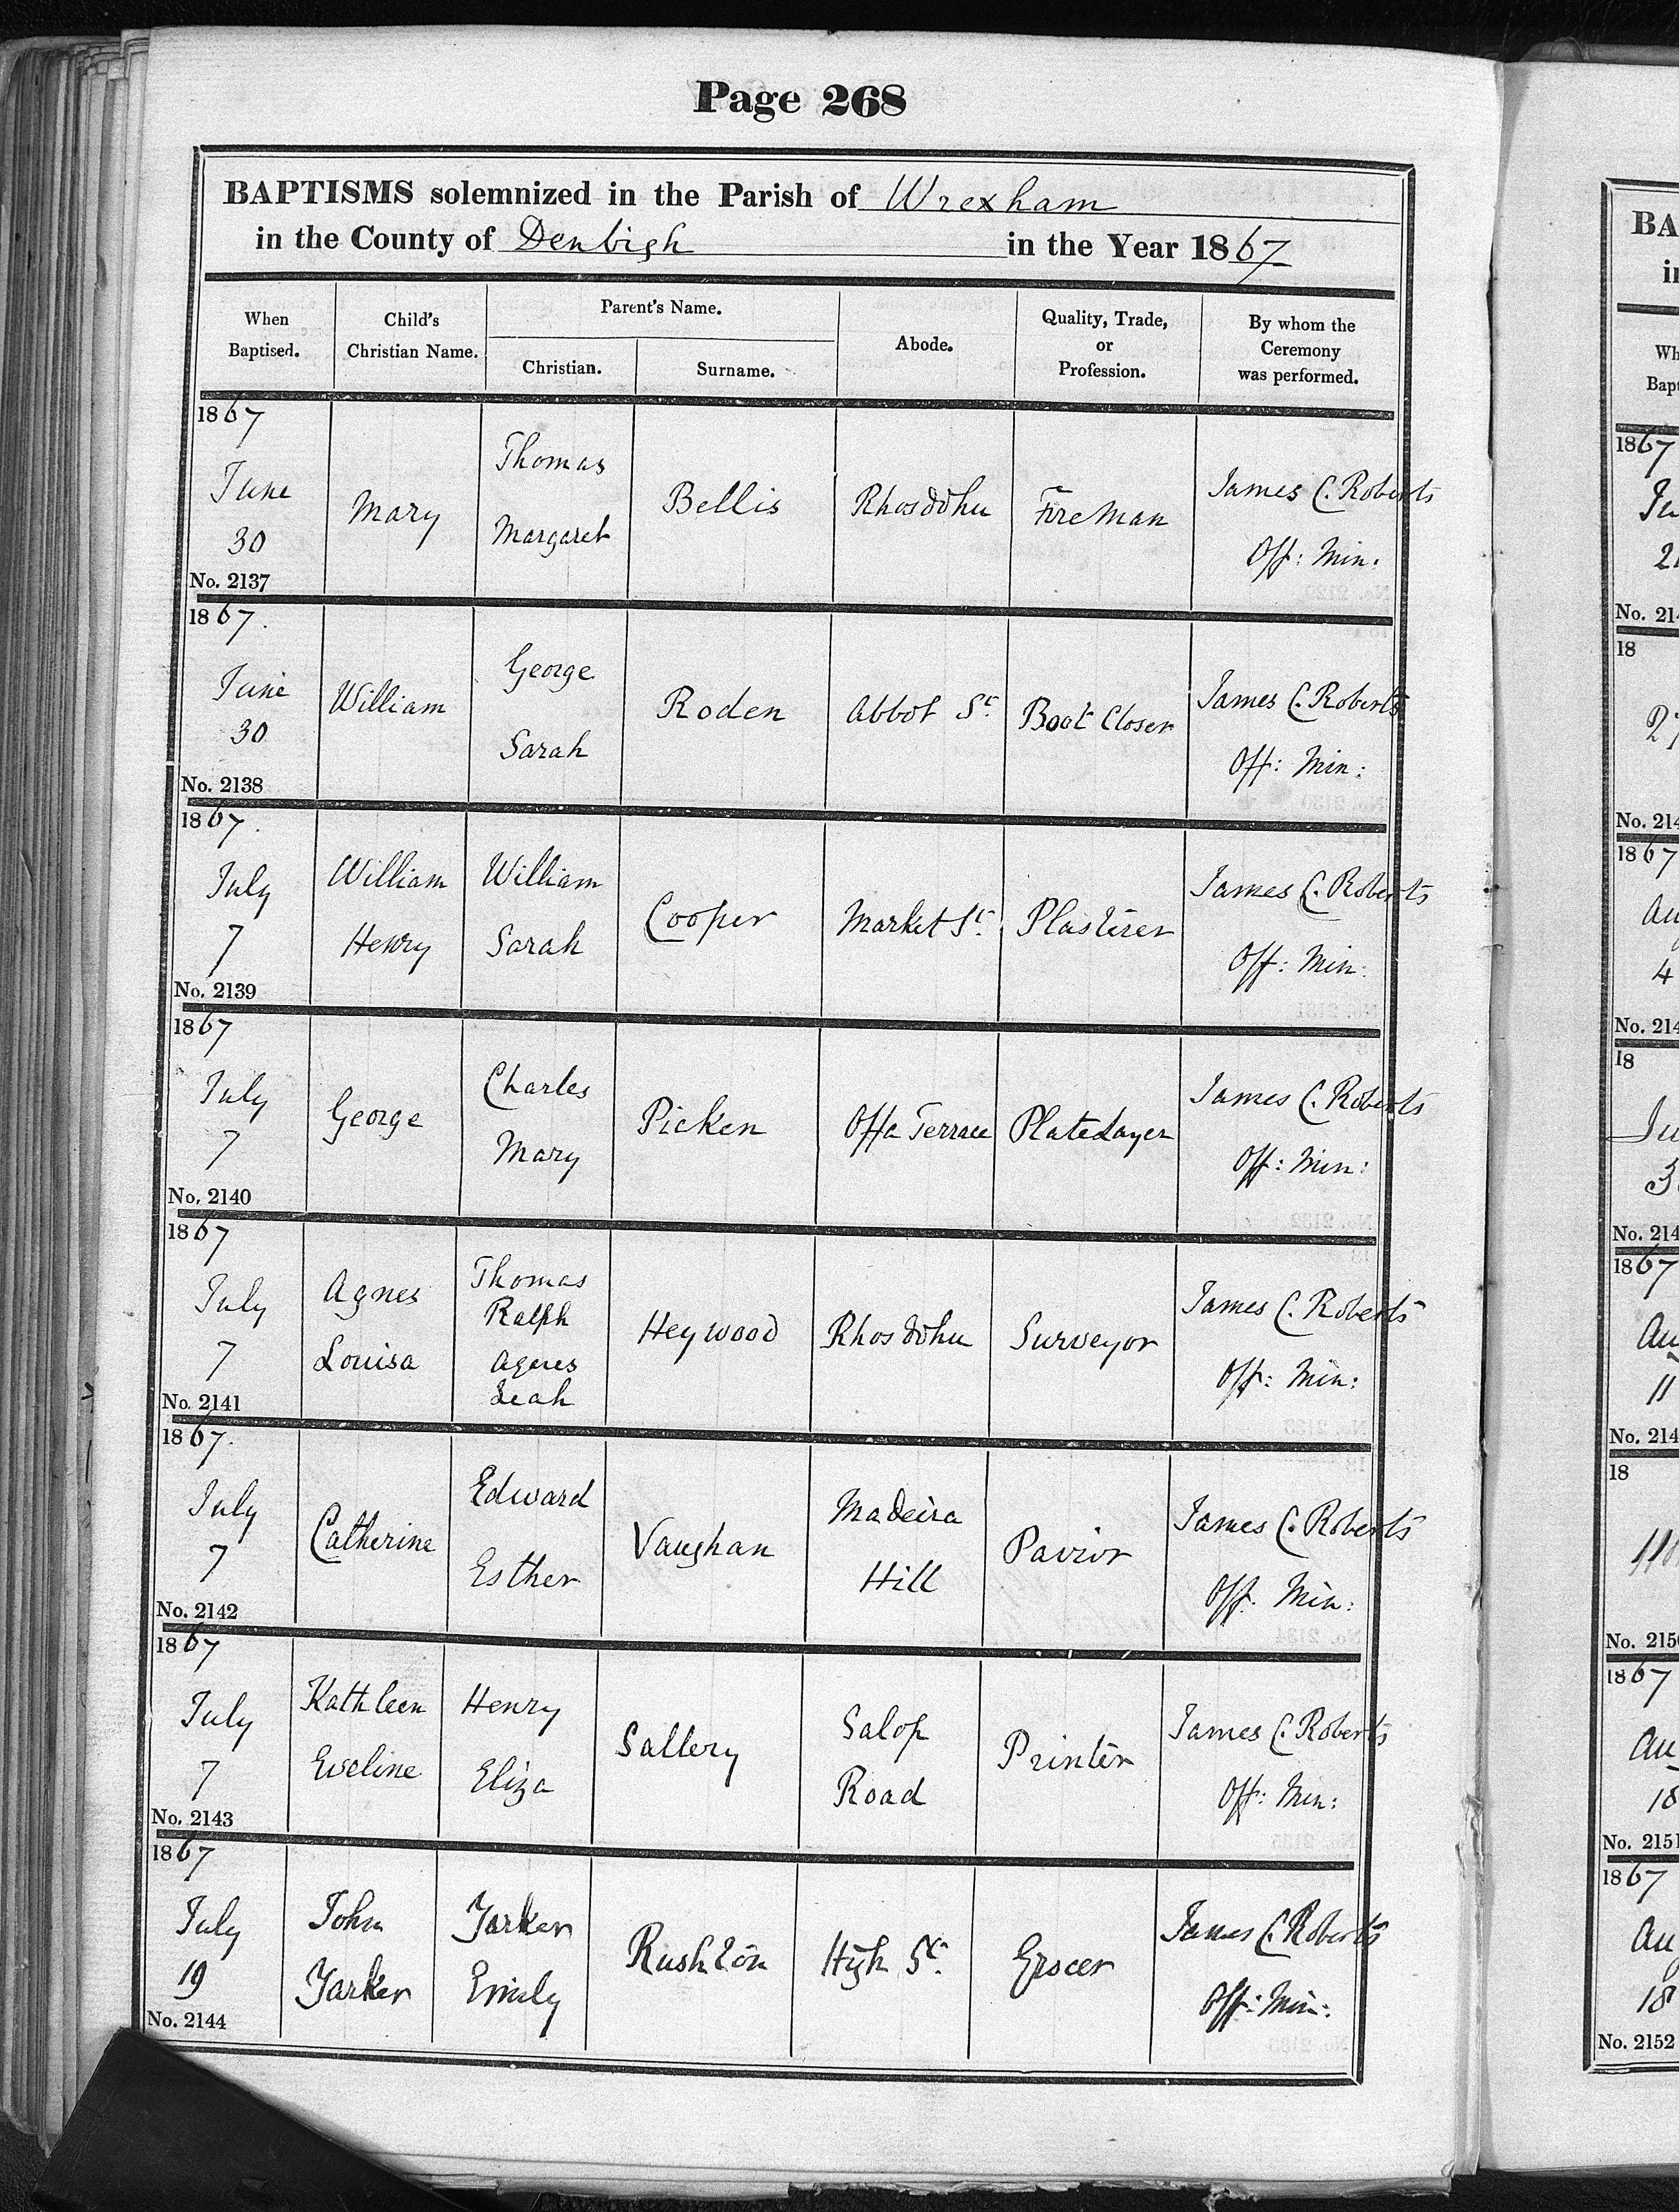 Page 268
BAPTISMS solemnized in the Parish of Wrexham
in the County of Denbigh in the Year 1867
When Baptised.
Child's Christian Name.
Parent's Name.
Christian.
Surname.
Abode.
Quality, Trade, or Profession.
By whom the Ceremony was performed.
1867
June
30
No. 2137
Mary
Thomas
Margaret
Bellis
Rhosddhu
Fireman
James C. Roberts
Off: Min:
1867.
June
30
No. 2138
William
George
Sarah
Roden
Abbot St.
Boot Closer
James C. Roberts
Off: Min:
1867.
July
7
No. 2139
William
Henry
William
Sarah
Cooper
Market St.
Plasterer
James C. Roberts
Off: Min:
1867
July
7
No. 2140
George
Charles
Mary
Picken
Offa Terrace
PlateLayer
James C. Roberts
Off: Min:
1867
July
7
No. 2141
Agnes
Louisa
Thomas
Ralph
Agnes
Leah
Heywood
Rhosddhu
Surveyor
James C. Roberts
Off: Min:
1867.
July
7
No. 2142
Catherine
Edward
Esther
Vaughan
Madeira
Hill
Pavior
James C. Roberts
Off: Min:
1867
July
7
No. 2143
Kathleen
Eveline
Henry
Eliza
Sallery
Salop
Road
Printer
James C. Roberts
Off: Min:
1867
July
19
No. 2144
John
Yarker
Yarker
Emily
Rushton
High St.
Grocer
James C. Roberts
Off: Min:
BA
1867
18
1867
4
18
1867
11
18
No. 2151
1867
18
1867
18
No. 2152